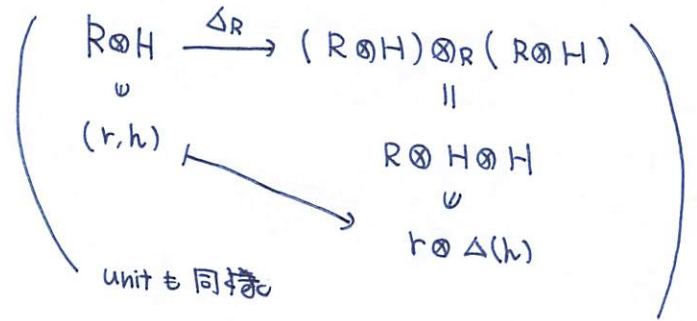 R⊗H —Δ_R→ (R⊗H)⊗_R(R⊗H)
∪ ||
(r,h) R⊗H⊗H
↦ ∪
r⊗Δ(h)
unit も 同様